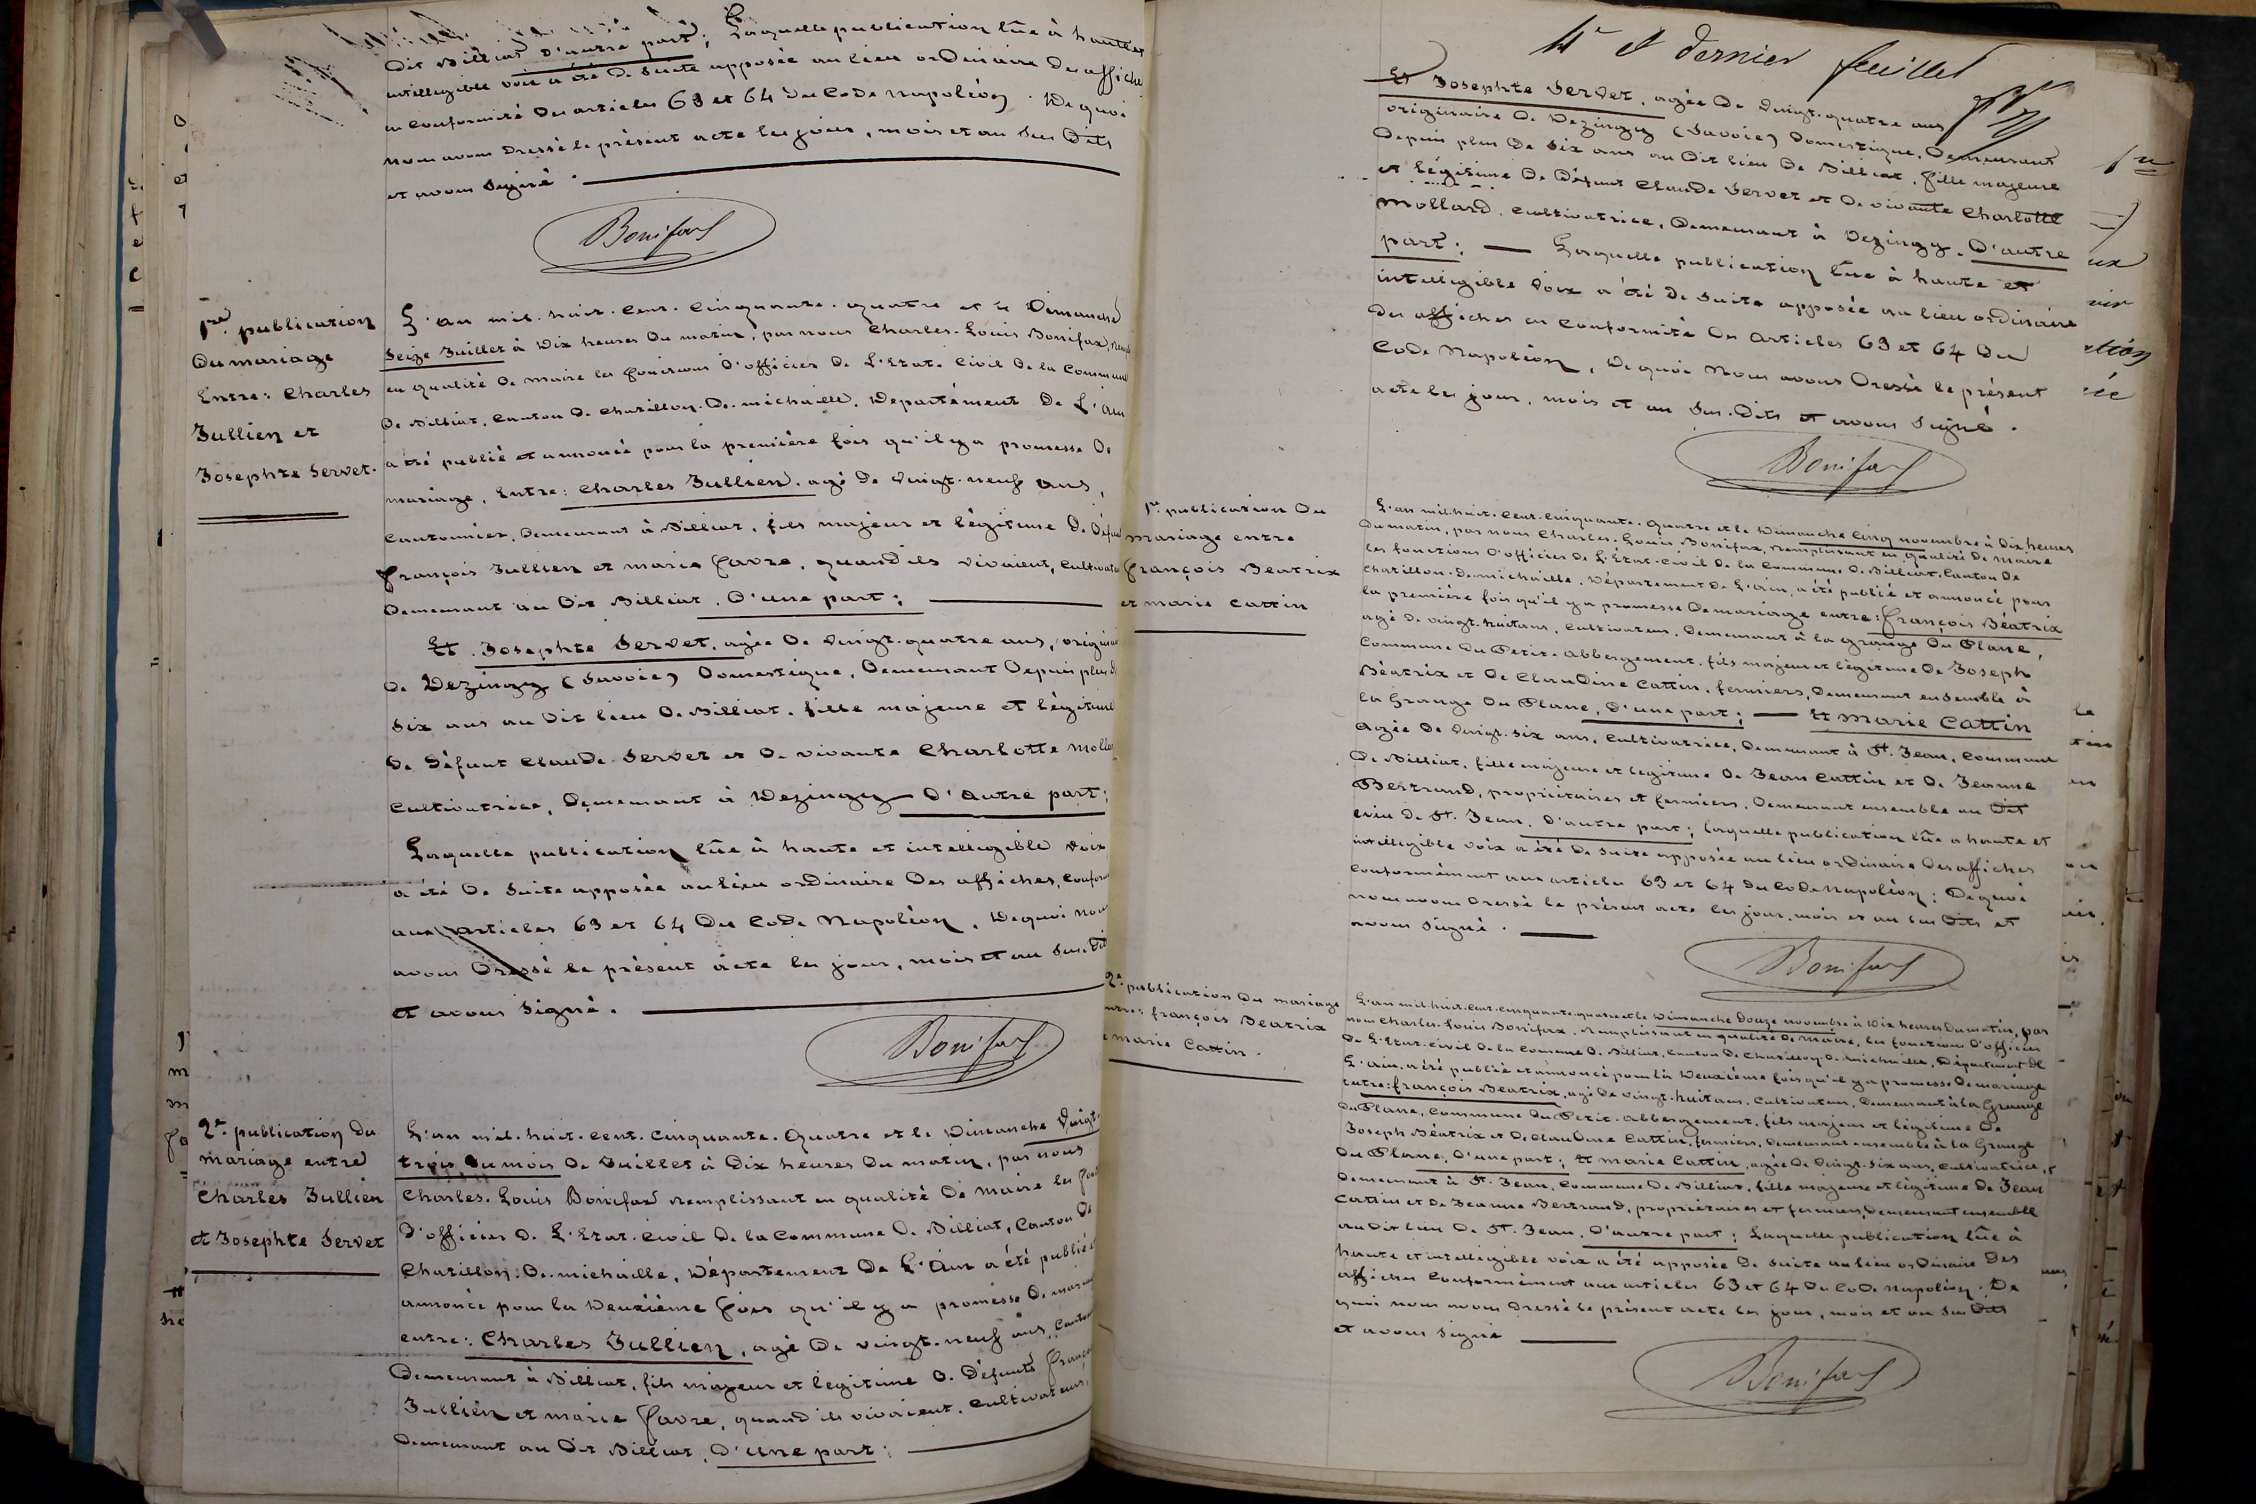 dit Billiat d'autre part; Laquelle publication lûe à haute et
intelligible voix a été de suite apposée au lieu ordinaire des affiches
en conformité des articles 63 et 64 du Code Napoléon. De quoi
nous avons dressé le présent acte les jour, mois et an sus dits
et avons signé.
Bonifax
1re publication
du mariage
Entre: Charles
Jullien et
Josephte Servet.
L'an mil-huit-cent-cinquante-quatre et le Dimanche
Seize Juillet à Dix heures du matin, par nous Charles-Louis Bonifax,
en qualité de maire les fonctions d'officier de L'Etat-Civil de la Commune
de Billiat, Canton de Chatillon-De-michaille, Département De L'Ain
a été publié et annoncé pour la première fois qu'il y a promesse De
mariage, Entre: Charles Jullien, agé de vingt-neuf ans,
Cantonnier, Demeurant à Billiat, fils majeur et légitime de Défunts
françois Jullien et marie favre, quand ils vivaient, Cultivateurs
Demeurant au Dit Billiat, D'une part;
Et Josephte Servet, agée de vingt-quatre ans, originaire
de Dezingy (Savoie) Domestique, Demeurant Depuis plus de
Six ans au Dit lieu De Billiat, fille majeure et légitime
De Défunt Claude Servet et De vivante Charlotte Mollard
Cultivatrice, Demeurant à Dezingy D'autre part;
Laquelle publication lûe à haute et intelligible voix
a été De suite apposée au lieu ordinaire Des affiches, Conform
aux articles 63 et 64 Du Code Napoléon, De quoi nous
avons Dressé le présent acte les jour, mois et an sus-dits
et avons signé.
Bonifax
2e publication du
mariage entre
Charles Jullien
et Josephte Servet
L'an mil-huit-cent-cinquante-quatre et le Dimanche vingt-
trois du mois de Juillet à Dix heures Du matin, par nous
Charles-Louis Bonifax remplissant en qualité De maire les
D'officier De L'Etat-Civil De la Commune De Billiat, Canton De
Chatillon-De-michaille, Département De L'Ain a été publié et
annoncé pour la Deuxième fois qu'il y a promesse De mariage
entre: Charles Jullien, agé De vingt-neuf ans, Cantonnier
Demeurant à Billiat, fils majeur et légitime De Défunts françois
Jullien et marie favre, quand ils vivaient, Cultivateurs,
Demeurant au Dit Billiat, D'une part;
4e et dernier feuillet
Et Josephte Servet, agée De vingt-quatre ans
originaire De Dezingy (Savoie) Domestique, Demeurant
Depuis plus De Six ans au Dit lieu De Billiat, fille majeure
et légitime De Défunt Claude Servet et De vivante Charlotte
Mollard, Cultivatrice, Demeurant à Dezingy, D'autre
part; Laquelle publication lûe à haute et
intelligible voix a été De suite apposée au lieu ordinaire
Des affiches en Conformité Des articles 63 et 64 Du
Code Napoléon, De quoi Nous avons Dressé le présent
acte les jour, mois et an sus-Dits et avons signé.
Bonifax
1re publication du
mariage entre
françois Beatrix
et marie Cattin
L'an mil-huit-cent-cinquante-quatre et le Dimanche Cinq novembre à Dix heures
Du matin, par nous Charles-Louis Bonifax, remplissant en qualité De maire
les fonctions D'officier De L'Etat-Civil De la Commune De Billiat, Canton De
Chatillon-De-michaille, Département De L'Ain, a été publié et annoncé pour
la première fois qu'il y a promesse De mariage entre: françois Béatrix
agé De vingt-huit ans, Cultivateur, Demeurant à la grange Du Plane,
Commune Du Petit-Abbergement, fils majeur et légitime De Joseph
Béatrix et De Claudine Cattin, fermiers, Demeurant ensemble à
la Grange Du Plane, D'une part; Et Marie Cattin
Agée De vingt-six ans, Cultivatrice, Demeurant à St. Jean, Commune
De Billiat, fille majeure et légitime De Jean Cattin et De Jeanne
Bertrand, propriétaires et fermiers, Demeurant ensemble au Dit
lieu De St. Jean, D'autre part; laquelle publication lûe a haute et
intelligible voix a été De suite apposée au lieu ordinaire Des affiches
Conformément aux articles 63 et 64 du Code Napoléon; De quoi
nous avons Dressé le présent acte les jour, mois et an sus Dits et
avons signé.
Bonifax
2e publication du mariage
entre: françois Beatrix
et marie Cattin.
L'an mil-huit-cent-cinquante-quatre et le Dimanche Douze novembre à Dix heures Du matin, par
nous Charles-Louis Bonifax, remplissant en qualité De maire, les fonctions D'officier
De L'Etat-Civil De la Commune De Billiat, Canton De Chatillon-De-michaille, Département De
L'Ain, a été publié et annoncé pour la Deuxième fois qu'il y a promesse De mariage
entre: françois Beatrix, agé De vingt-huit ans, Cultivateur, Demeurant à la Grange
Du Plane, Commune Du Petit-Abbergement, fils majeur et légitime De
Joseph Béatrix et De Claudine Cattin, fermiers, Demeurant ensemble à la Grange
Du Plane, D'une part; Et Marie Cattin, agée De vingt-six ans, Cultivatrice,
Demeurant à St. Jean, Commune De Billiat, fille majeure et légitime De Jean
Cattin et De Jeanne Bertrand, propriétaires et fermiers, Demeurant ensemble
au Dit lieu De St. Jean, D'autre part; Laquelle publication lûe à
haute et intelligible voix a été apposée De suite au lieu ordinaire Des
affiches Conformément aux articles 63 et 64 Du Code Napoléon. De
quoi nous avons Dressé le présent acte les jour, mois et an sus Dits
et avons signé
Bonifax